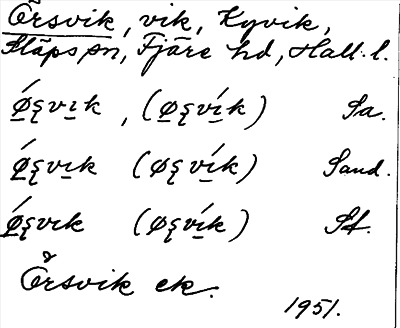 Örsvik, vik, Kyvik,
Släps sn, Fjäre hd, Hall. l.
Ǿʂvɪk, (øʂvɪ́k) Sa.
Ǿʂvɪk (øʂvɪ́k) Sand.
Ǿʂvɪk (øʂvɪ́k) St.
Örsvik ek.
1951.